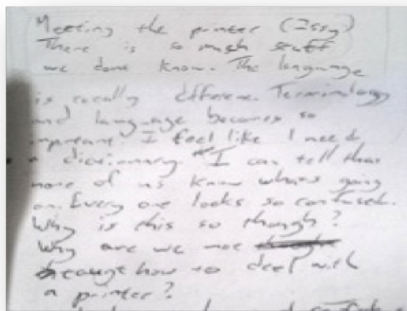 Meeting the printer (Issy)
There is so much stuff
we dont know. The language
is really different. Terminology
and language becomes so
important. I feel like I need
a dictionary. I can tell that
none of us know whats going
on. Every one looks so confused.
Why is this so though?
Why are we not
taught how to deal with
a printer?